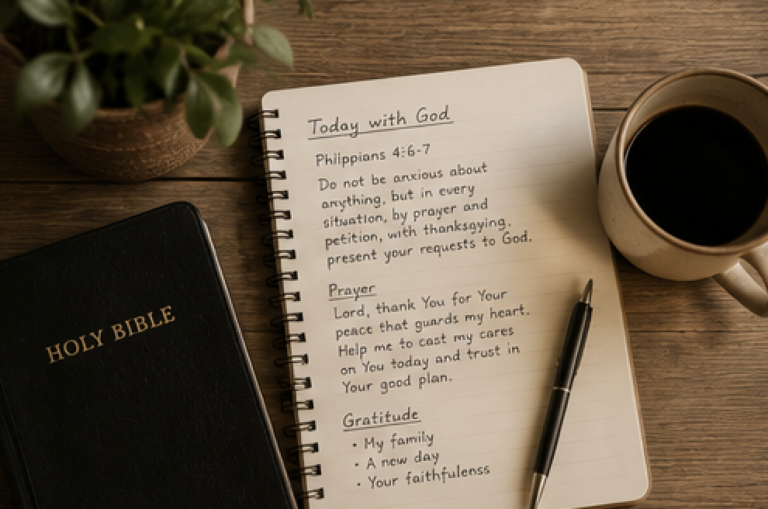 HOLY BIBLE
Today with God
Phiippians 4:6-7
Do not be anxious about
anything, but in every
situation, by prayer and
petition, with thanksgying,
present your requests to God.
Prayer
Lord, thank You for Your
peace that guards my heart.
Help me to cast my cares
on You today and trust in
Your good plan.
Gratitude
• My family
• A new day
• Your faithfulenss